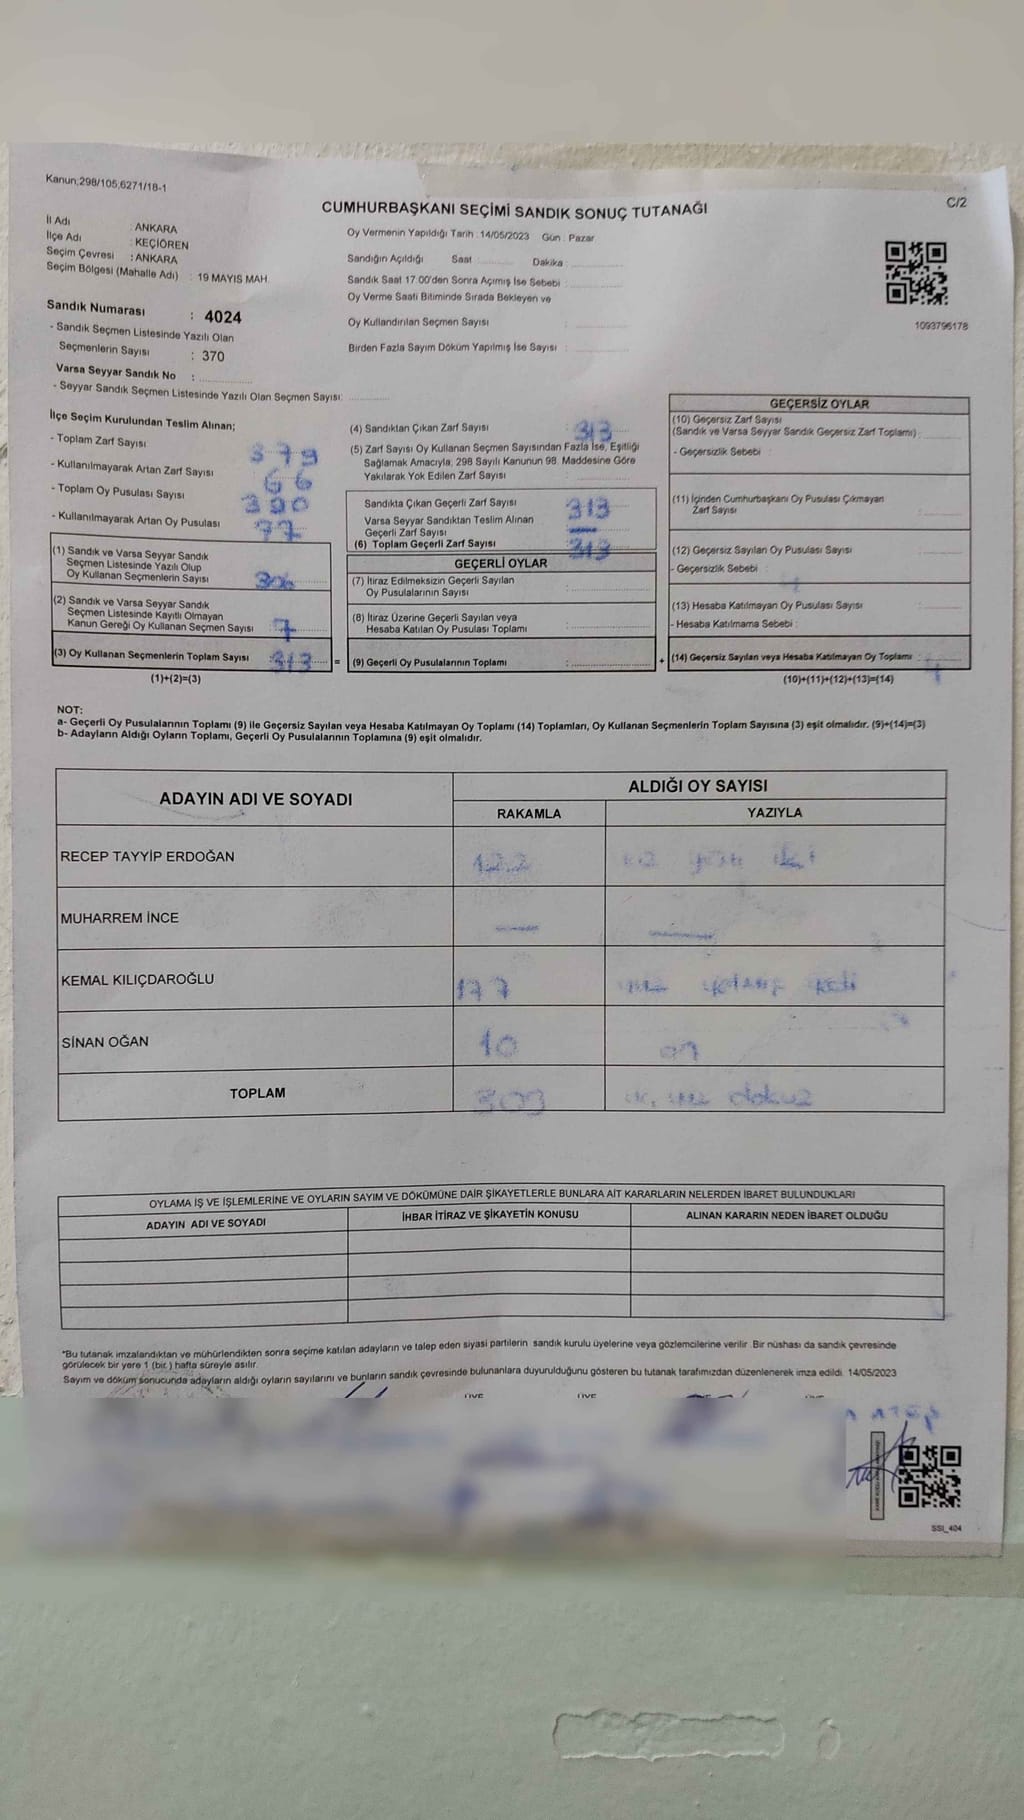 Kanun;298/105,6271/18-1
C/2
CUMHURBAŞKANI SEÇİMİ SANDIK SONUÇ TUTANAĞI
İl Adı : ANKARA
İlçe Adı : KEÇİÖREN
Seçim Çevresi : ANKARA
Seçim Bölgesi (Mahalle Adı) : 19 MAYIS MAH.
Sandık Numarası : 4024
- Sandık Seçmen Listesinde Yazılı Olan
Seçmenlerin Sayısı : 370
Varsa Seyyar Sandık No :
- Seyyar Sandık Seçmen Listesinde Yazılı Olan Seçmen Sayısı:
Oy Vermenin Yapıldığı Tarih : 14/05/2023 Gün : Pazar
Sandığın Açıldığı Saat : Dakika :
Sandık Saat 17:00'den Sonra Açımış İse Sebebi :
Oy Verme Saati Bitiminde Sırada Bekleyen ve
Oy Kullandırılan Seçmen Sayısı :
Birden Fazla Sayım Döküm Yapılmış İse Sayısı :
1093796178
İlçe Seçim Kurulundan Teslim Alınan;
- Toplam Zarf Sayısı 379
- Kullanılmayarak Artan Zarf Sayısı 66
- Toplam Oy Pusulası Sayısı
- Kullanılmayarak Artan Oy Pusulası 77
(1) Sandık ve Varsa Seyyar Sandık
Seçmen Listesinde Yazılı Olup
Oy Kullanan Seçmenlerin Sayısı 306
(2) Sandık ve Varsa Seyyar Sandık
Seçmen Listesinde Kayıtlı Olmayan
Kanun Gereği Oy Kullanan Seçmen Sayısı 7
(3) Oy Kullanan Seçmenlerin Toplam Sayısı : 313 =
(1)+(2)=(3)
(4) Sandıktan Çıkan Zarf Sayısı 313
(5) Zarf Sayısı Oy Kullanan Seçmen Sayısından Fazla İse, Eşitliği
Sağlamak Amacıyla, 298 Sayılı Kanunun 98. Maddesine Göre
Yakılarak Yok Edilen Zarf Sayısı :
Sandıkta Çıkan Geçerli Zarf Sayısı 313
Varsa Seyyar Sandıktan Teslim Alınan
Geçerli Zarf Sayısı
(6) Toplam Geçerli Zarf Sayısı 313
GEÇERLİ OYLAR
(7) İtiraz Edilmeksizin Geçerli Sayılan
Oy Pusulalarının Sayısı :
(8) İtiraz Üzerine Geçerli Sayılan veya
Hesaba Katılan Oy Pusulası Toplamı :
(9) Geçerli Oy Pusulalarının Toplamı : +
GEÇERSİZ OYLAR
(10) Geçersiz Zarf Sayısı
(Sandık ve Varsa Seyyar Sandık Geçersiz Zarf Toplamı) :
- Geçersizlik Sebebi :
(11) İçinden Cumhurbaşkanı Oy Pusulası Çıkmayan
Zarf Sayısı :
(12) Geçersiz Sayılan Oy Pusulası Sayısı :
- Geçersizlik Sebebi :
(13) Hesaba Katılmayan Oy Pusulası Sayısı :
- Hesaba Katılmama Sebebi :
(14) Geçersiz Sayılan veya Hesaba Katılmayan Oy Toplamı : 4
(10)+(11)+(12)+(13)=(14)
NOT:
a- Geçerli Oy Pusulalarının Toplamı (9) ile Geçersiz Sayılan veya Hesaba Katılmayan Oy Toplamı (14) Toplamları, Oy Kullanan Seçmenlerin Toplam Sayısına (3) eşit olmalıdır. (9)+(14)=(3)
b- Adayların Aldığı Oyların Toplamı, Geçerli Oy Pusulalarının Toplamına (9) eşit olmalıdır.
ADAYIN ADI VE SOYADI ALDIĞI OY SAYISI
RAKAMLA YAZIYLA
RECEP TAYYİP ERDOĞAN 122 iki
MUHARREM İNCE
KEMAL KILIÇDAROĞLU 177
SİNAN OĞAN 10 on
TOPLAM dokuz
OYLAMA İŞ VE İŞLEMLERİNE VE OYLARIN SAYIM VE DÖKÜMÜNE DAİR ŞİKAYETLERLE BUNLARA AİT KARARLARIN NELERDEN İBARET BULUNDUKLARI
ADAYIN ADI VE SOYADI İHBAR İTİRAZ VE ŞİKAYETİN KONUSU ALINAN KARARIN NEDEN İBARET OLDUĞU
*Bu tutanak imzalandıktan ve mühürlendikten sonra seçime katılan adayların ve talep eden siyasi partilerin sandık kurulu üyelerine veya gözlemcilerine verilir. Bir nüshası da sandık çevresinde
görülecek bir yere 1 (bir ) hafta süreyle asılır.
Sayım ve döküm sonucunda adayların aldığı oyların sayılarını ve bunların sandık çevresinde bulunanlara duyurulduğunu gösteren bu tutanak tarafımızdan düzenlenerek imza edildi. 14/05/2023
ÜYE ÜYE
SSI_404